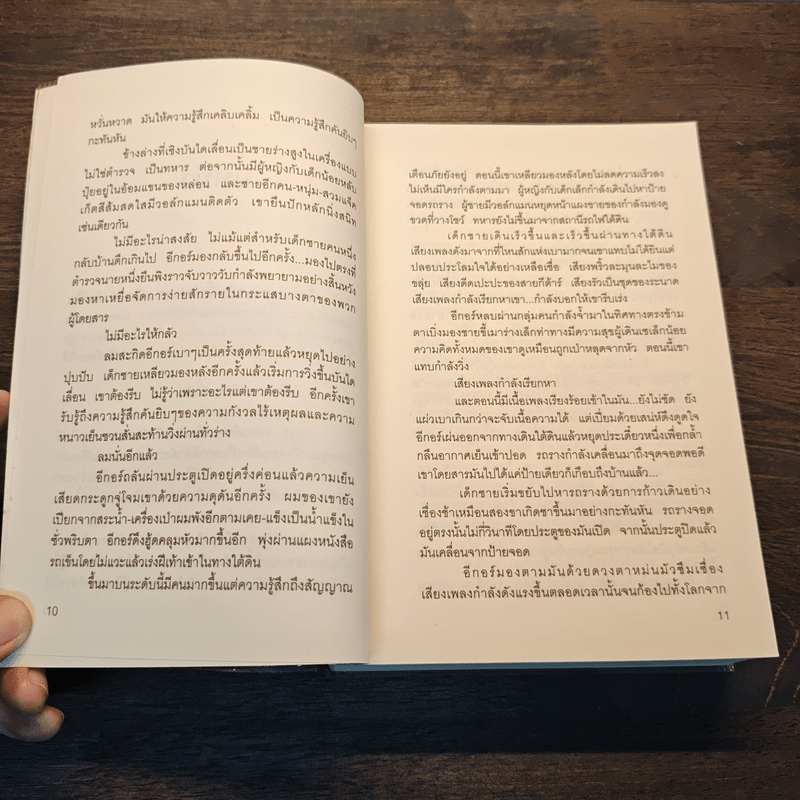 หวั่นหวาด มันให้ความรู้สึกเคลิบเคลิ้ม เป็นความรู้สึกคันยิบๆ
กะทันหัน
ข้างล่างที่เชิงบันไดเลื่อนเป็นชายร่างสูงในเครื่องแบบ
ไม่ใช่ตำรวจ เป็นทหาร ต่อจากนั้นมีผู้หญิงกับเด็กน้อยหลับ
ปุ๋ยอยู่ในอ้อมแขนของหล่อน และชายอีกคน-หนุ่ม-สวมแจ็ค
เก็ตสีส้มสดใสมีวอล์กแมนติดตัว เขายืนปักหลักนิ่งสนิท
เช่นเดียวกัน
ไม่มีอะไรน่าสงสัย ไม่แม้แต่สำหรับเด็กชายคนหนึ่ง
กลับบ้านดึกเกินไป อีกอร์มองกลับขึ้นไปอีกครั้ง...มองไปตรงที่
ตำรวจนายหนึ่งยืนพิงราวจับวาววับกำลังพยายามอย่างสิ้นหวัง
มองหาเหยื่อจัดการง่ายสักรายในกระแสบางตาของพวก
ผู้โดยสาร
ไม่มีอะไรให้กลัว
ลมสะกิดอีกอร์เบาๆเป็นครั้งสุดท้ายแล้วหยุดไปอย่าง
ปุบปับ เด็กชายเหลียวมองหลังอีกครั้งแล้วเริ่มการวิ่งขึ้นบันได
เลื่อน เขาต้องรีบ ไม่รู้ว่าเพราะอะไรแต่เขาต้องรีบ อีกครั้งเขา
รับรู้ถึงความรู้สึกคันยิบๆของความกังวลไร้เหตุผลและความ
หนาวเย็นชวนสั่นสะท้านวิ่งผ่านทั่วร่าง
ลมนั่นอีกแล้ว
อีกอร์ถลันผ่านประตูเปิดอยู่ครึ่งค่อนแล้วความเย็น
เสียดกระดูกจู่โจมเขาด้วยความดุดันอีกครั้ง ผมของเขายัง
เปียกจากสระน้ำ-เครื่องเป่าผมพังอีกตามเคย-แข็งเป็นน้ำแข็งใน
ชั่วพริบตา อีกอร์ดึงฮู้ดคลุมหัวมากขึ้นอีก พุ่งผ่านแผงหนังสือ
รถเข็นโดยไม่แวะแล้วเร่งฝีเท้าเข้าในทางใต้ดิน
ขึ้นมาบนระดับนี้มีคนมากขึ้นแต่ความรู้สึกถึงสัญญาณ
10
เตือนภัยยังอยู่ ตอนนี้เขาเหลียวมองหลังโดยไม่ลดความเร็วลง
ไม่เห็นมีใครกำลังตามมา ผู้หญิงกับเด็กเล็กกำลังเดินไปหาป้าย
จอดรถราง ผู้ชายมีวอล์กแมนหยุดหน้าแผงขายของกำลังมองดู
ขวดที่วางโชว์ ทหารยังไม่ขึ้นมาจากสถานีรถไฟใต้ดิน
เด็กชายเดินเร็วขึ้นและเร็วขึ้นผ่านทางใต้ดิน
เสียงเพลงดังมาจากที่ไหนสักแห่งเบามากจนเขาแทบไม่ได้ยินแต่
ปลอบประโลมใจได้อย่างเหลือเชื่อ เสียงพริ้วละมุนละไมของ
ขลุ่ย เสียงดีดเปะปะของสายกีต้าร์ เสียงรัวเป็นชุดของระนาด
เสียงเพลงกำลังเรียกหาเขา...กำลังบอกให้เขารีบเร่ง
อีกอร์หลบผ่านกลุ่มคนกำลังจ้ำมาในทิศทางตรงข้าม
ตาเบิ่งมองชายขี้เมาร่างเล็กท่าทางมีความสุขผู้เดินเซเล็กน้อย
ความคิดทั้งหมดของเขาดูเหมือนถูกเป่าหลุดจากหัว ตอนนี้เขา
แทบกำลังวิ่ง
เสียงเพลงกำลังเรียกหา
และตอนนี้มีเนื้อเพลงเรียงร้อยเข้าในมัน...ยังไม่ชัด ยัง
แผ่วเบาเกินกว่าจะจับเนื้อความได้ แต่เปี่ยมด้วยเสน่ห์ดึงดูดใจ
อีกอร์เผ่นออกจากทางเดินใต้ดินแล้วหยุดประเดี๋ยวหนึ่งเพื่อกล้ำ
กลืนอากาศเย็นเข้าปอด รถรางกำลังเคลื่อนมาถึงจุดจอดพอดี
เขาโดยสารมันไปได้แค่ป้ายเดียวก็เกือบถึงบ้านแล้ว...
เด็กชายเริ่มขยับไปหารถรางด้วยการก้าวเดินอย่าง
เชื่องช้าเหมือนสองขาเกิดชาขึ้นมาอย่างกะทันหัน รถรางจอด
อยู่ตรงนั้นไม่กี่วินาทีโดยประตูของมันเปิด จากนั้นประตูปิดแล้ว
มันเคลื่อนจากป้ายจอด
อีกอร์มองตามมันด้วยดวงตาหม่นมัวซึมเซื่อง
เสียงเพลงกำลังดังแรงขึ้นตลอดเวลานั้นจนก้องไปทั้งโลกจาก
11